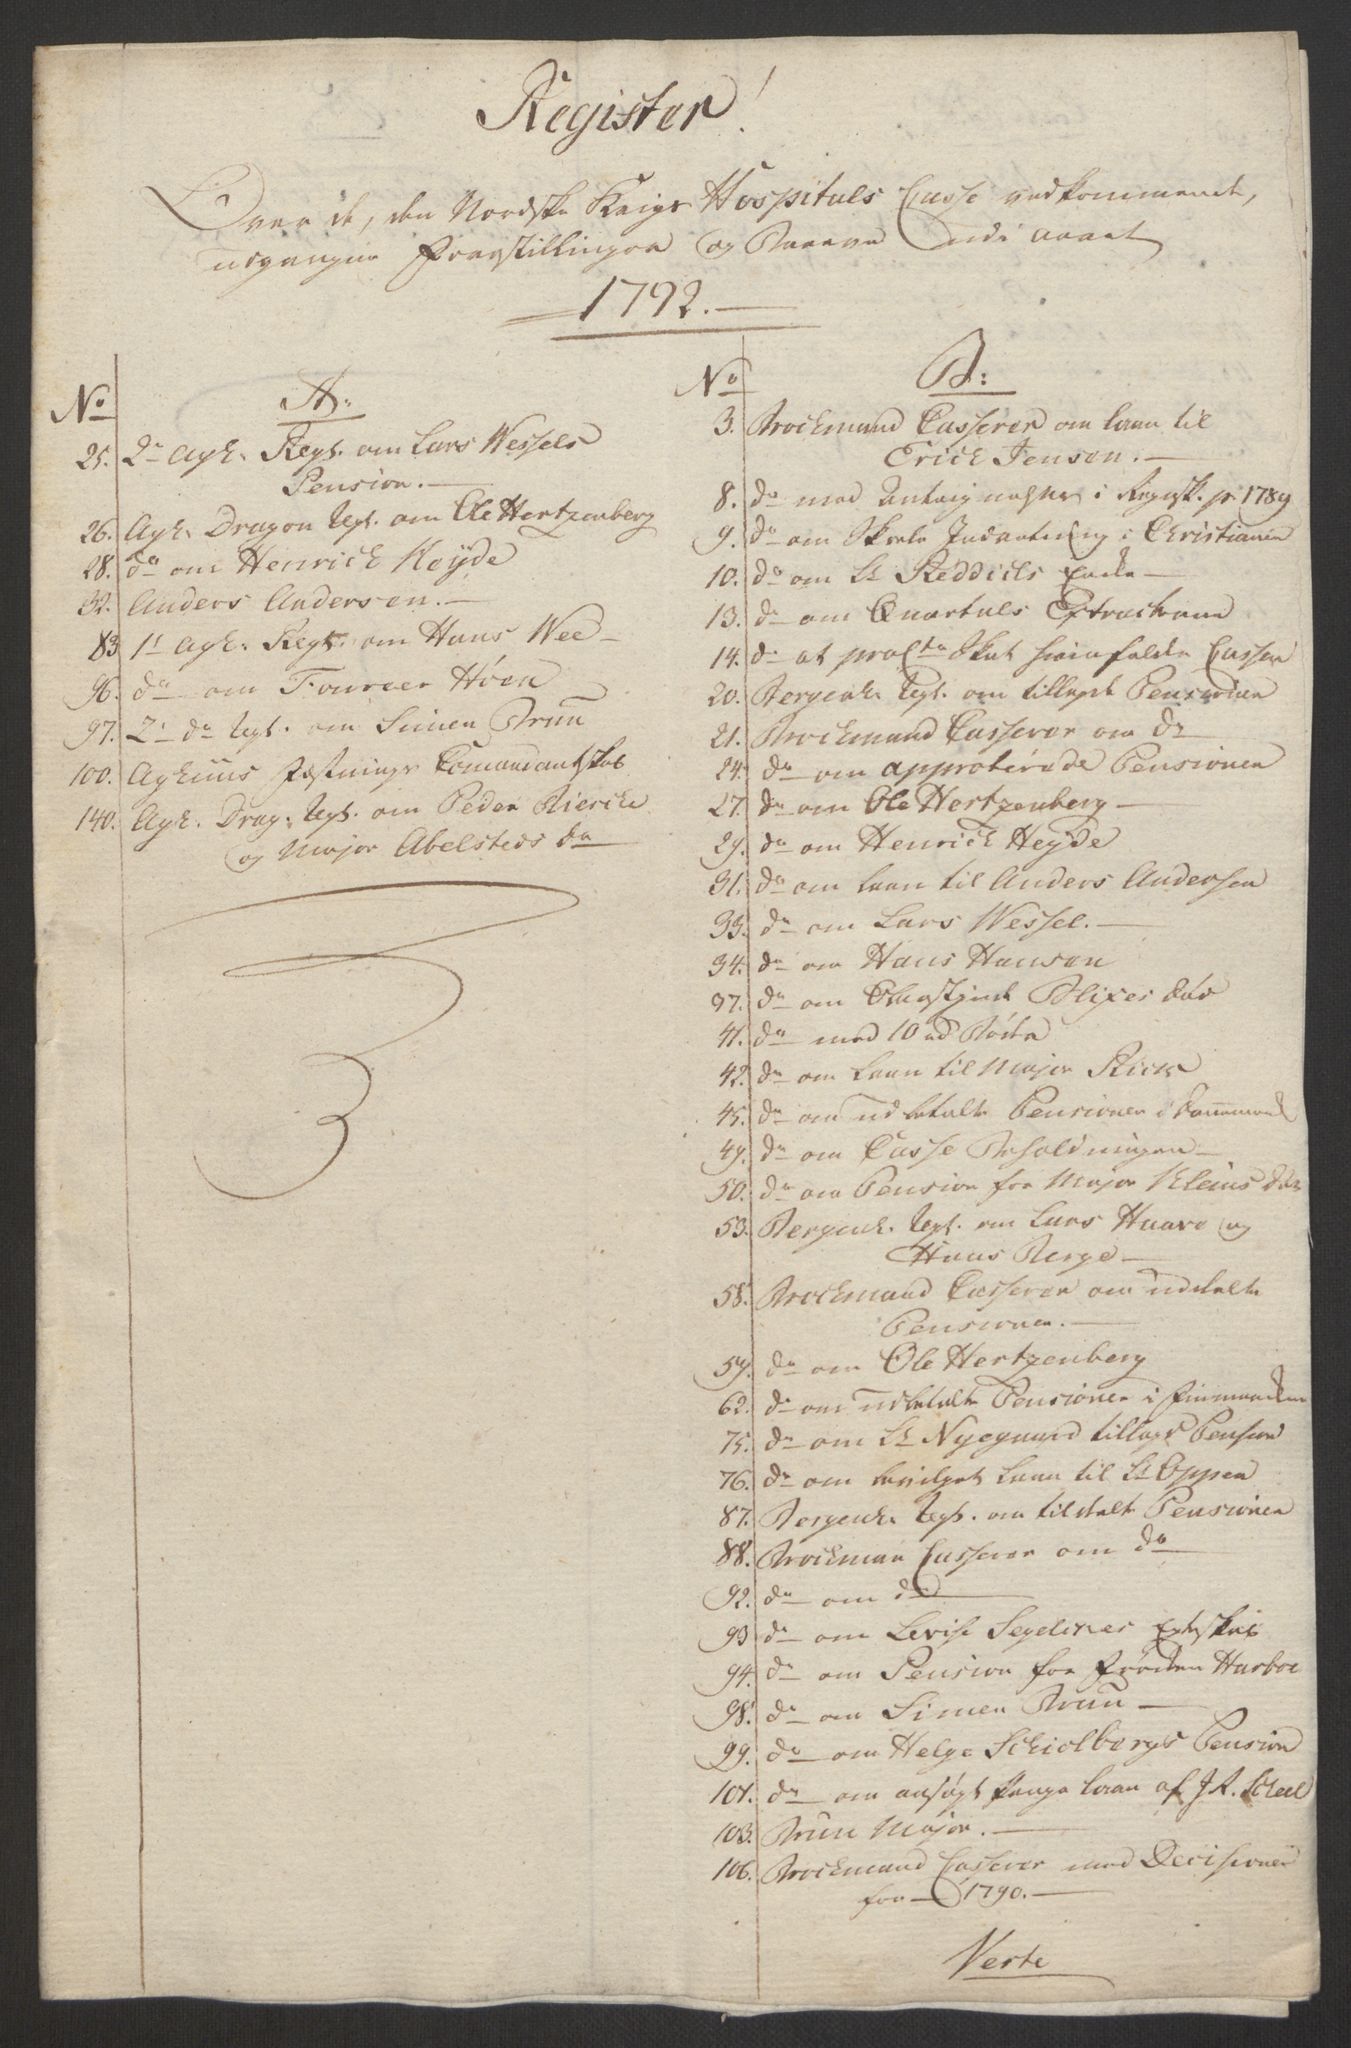 Register!
Over de, den Nordske Krigs Hospitals Casse vedkommende,
udgangne Forestillinger og Breve udi aaret
1792.
No
A:
25. 2de Agh. Regt. om Lars Wessels
Pension.
26. Agh. Dragon Regt. om Ole Hertzenberg
28. do om Henrich Heyde
32. Anders Andersen.
83 1t Agh. Regt. om Hans Wee
96. do om Foureer Höen
97. 2t do Regt. om Simen Bruu
100. Aghuus Fæstnings Comandantskab
140. Agh. Drag. Regt. om Peder Biercke
og Major Abelsteds do
No
B:
3. Brockmand Casserer om laan til
Erich Jensen.
8. do med Antegnelser i Regnsk. pr 1789
9. do om Skeels Indretning i Christiania
10. do om Lt Reddiels Enke
13. do om Quartals Extracterne
14. do at Skat hiemfalde Cassen
20. Bergenh. Regt. om tillagde Pensioner
21. Brockmand Casserer om do
24. do om approberede Pensioner
27. do om Ole Hertzenberg
29. do om Henrich Heyde
31. do om laan til Anders Andersen
33. do om Lars Wessel.
34. do om Hans Hansen
37. do om Oberstinde Blixes död
41. do med 10 ud Böder
42. do om laan til Major Rick
45. do om udbetalte Pensioner i Dannemark
49. do om Casse Beholdningen
50. do om Pension for Major Kleins
53. Bergenh. Regt. om Lars Haave og
Haus Berge
58. Brockmand Casserer om uddelte
Pensioner.
59. do om Ole Hertzenberg
62. do om udbetalte Pensioner i Finmarken
75. do om Lt Nyegaard tillags Pension
76. do om bevilget laan til Lt Oppen
87. Bergenh. Regt. om tildelte Pensioner
88. Brockman Casserer om do
92. do om do
93 do om Levise Segelckes Egteskab
94. do om Pension for Fröiken Harboe
98. do om Simen Bruu
99. do om Helge Schiolborgs Pension
101. do om ansögt Penge laan af J. R. Scheel
103. Bruu Major.
106. Brockmand Casserer med Decisioner
for 1790.
Verte